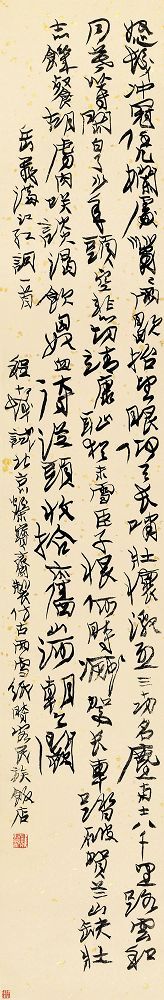 怒髮冲冠凭欄處瀟瀟雨歇抬望眼仰天長嘯壯懷激烈三十功名塵与土八千里路雲和
月莫等閑白了少年頭空悲切靖康恥猶未雪臣子恨何時滅駕長車踏破賀蘭山缺壯
志飢餐胡虜肉笑談渴飲匈奴血待從頭收拾舊山河朝天闕
岳飛滿江紅詞一首 程十髮試北京榮寶齋製仿古雨雪紙時客民族飯店